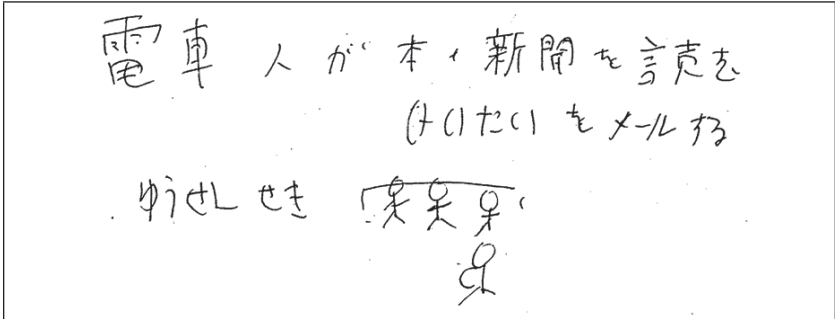 電車 人が 本、新聞を 読を
けいたいをメールする
ゆうせんせき